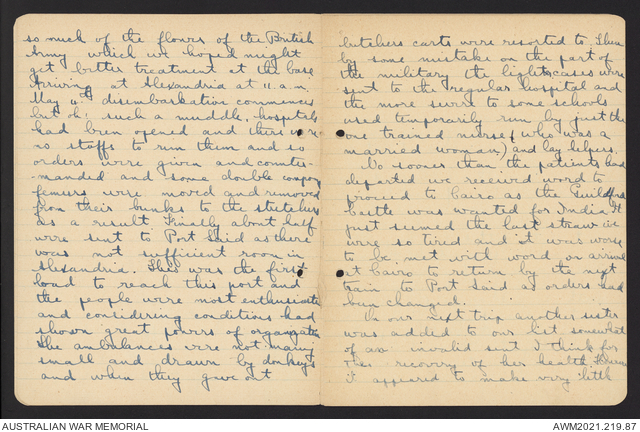 so much of the flower of the British
Army which we hoped might
get better treatment at the base
Arriving at Alexandria at 11. a.m.
May 4th disembarkation commenced
but oh! such a muddle, hospitals
had been opened and there were
no staffs to run them and so
orders were given and counter-
-manded and some double compound
femurs were moved and removed
from their bunks to the stretchers
as a result. Finally about half
were sent to Port Said as there
was not sufficient room in
Alexandria. This was the first
load to reach this port and
the people were most enthusiastic
and considering conditions had
shown great powers of organization
The ambulances were not many
small and drawn by donkeys
and when they gave out
butchers carts were resorted to. Then
by some mistake on the part of
the military the light cases were
sent to the regular hospital and
the more severe to some schools
used temporarily run by just the
one trained nurse (who was a
married woman) and lay helpers.
No sooner than the patients had
departed we received word to
proceed to Cairo as the Guildford
Castle was wanted for India. It
just seemed the last straw as
were so tired and it was worse
to be met with word on arrival
at Cairo to return by the next
train to Port Said as orders had
been changed.
On our next trip another sister
was added to our list somewhat
of an invalid sent I think for
the recovery of her health.
it appeared to make very little
AUSTRALIAN WAR MEMORIAL
AWM2021.219.87